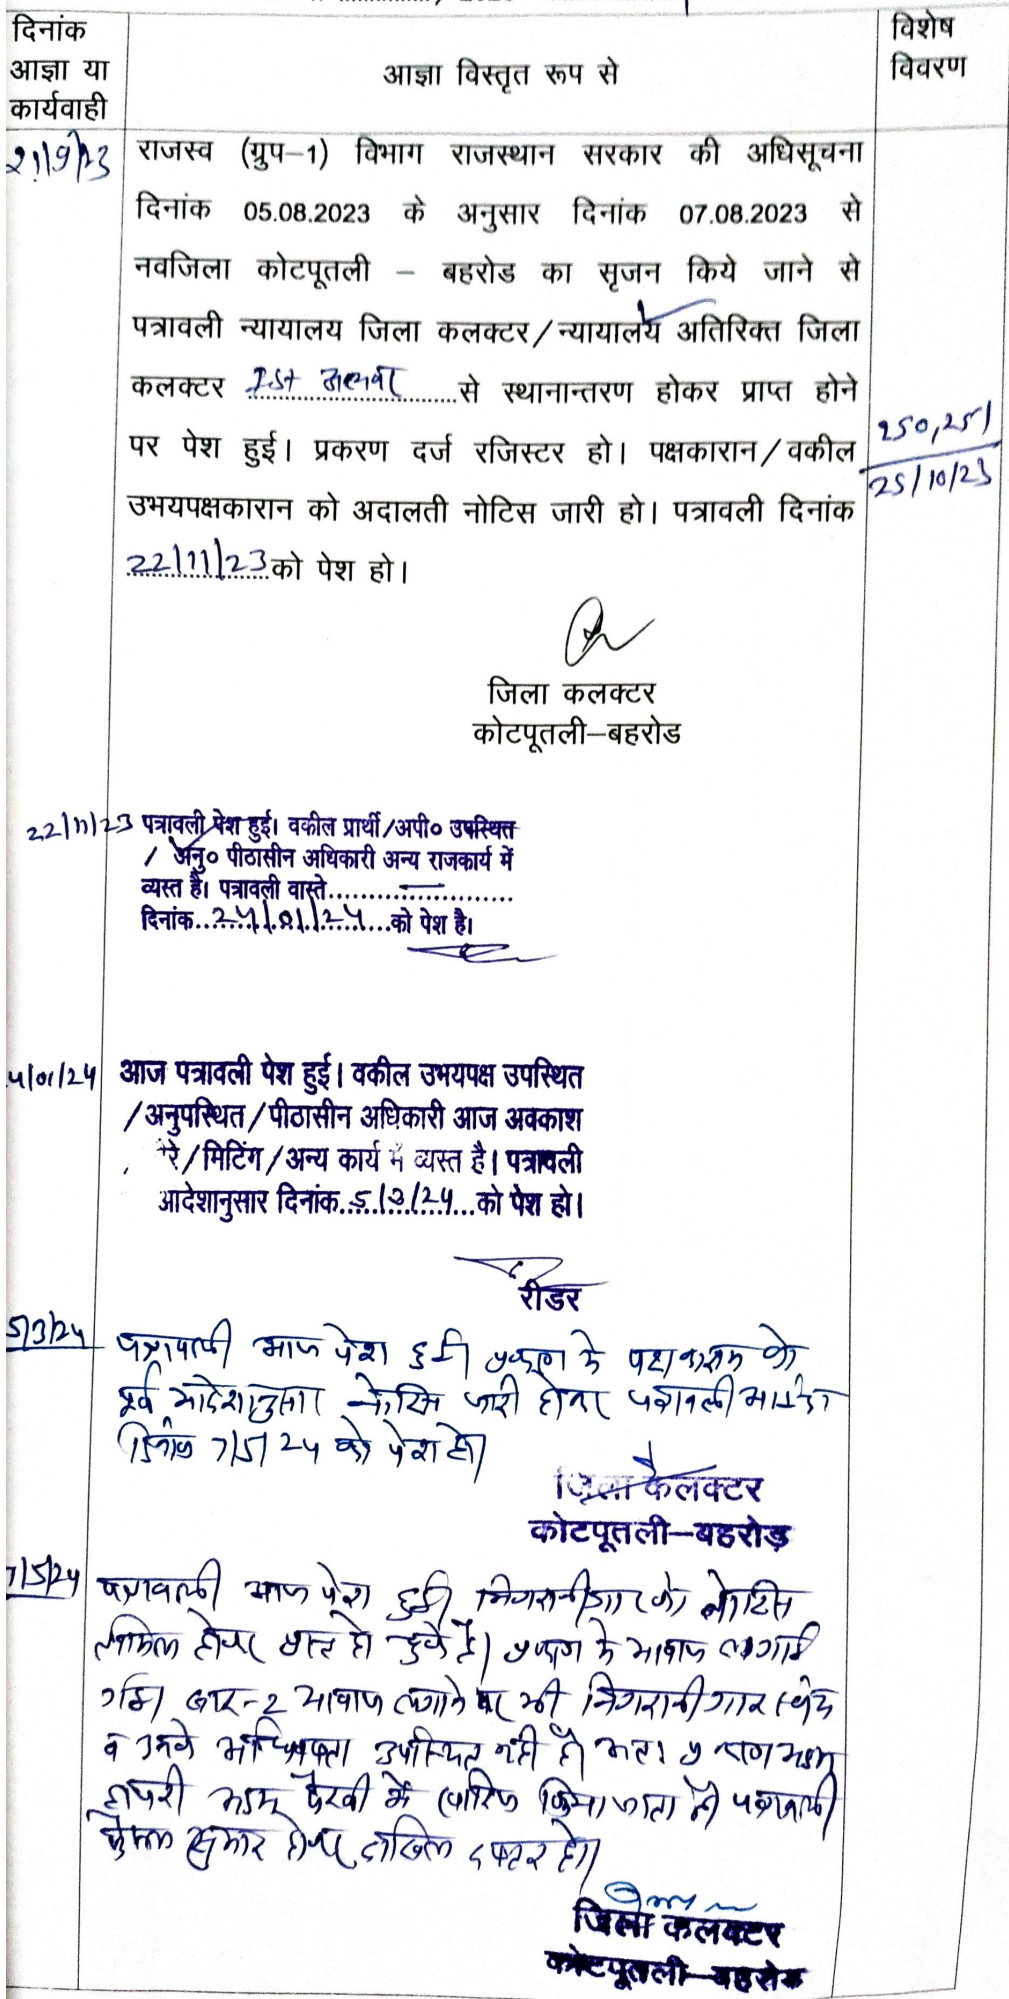 दिनांक
आज्ञा या
कार्यवाही
आज्ञा विस्तृत रूप से
विशेष
विवरण
21/9/23
राजस्व (ग्रुप–1) विभाग राजस्थान सरकार की अधिसूचना
दिनांक 05.08.2023 के अनुसार दिनांक 07.08.2023 से
नवजिला कोटपूतली – बहरोड का सृजन किये जाने से
पत्रावली न्यायालय जिला कलक्टर/न्यायालय अतिरिक्त जिला
कलक्टर Ist अलवर से स्थानान्तरण होकर प्राप्त होने
पर पेश हुई। प्रकरण दर्ज रजिस्टर हो। पक्षकारान/वकील
उभयपक्षकारान को अदालती नोटिस जारी हो। पत्रावली दिनांक
22/11/23 को पेश हो।
250,251
25/10/23
जिला कलक्टर
कोटपूतली–बहरोड
22/11/23 पत्रावली पेश हुई। वकील प्रार्थी/अपी० उपस्थित
/ अनु० पीठासीन अधिकारी अन्य राजकार्य में
व्यस्त है। पत्रावली वास्ते
दिनांक 24/01/24 को पेश है।
4/01/24 आज पत्रावली पेश हुई। वकील उभयपक्ष उपस्थित
/अनुपस्थित/पीठासीन अधिकारी आज अवकाश
रे/मिटिंग/अन्य कार्य में व्यस्त है। पत्रावली
आदेशानुसार दिनांक 5/3/24 को पेश हो।
रीडर
5/3/24 पत्रावली आज पेश हुई। प्रकरण के पक्षकारान को
पूर्व आदेशानुसार नोटिस जारी होकर पत्रावली
दिनांक 7/5/24 को पेश हो।
जिला कलक्टर
कोटपूतली–बहरोड़
7/5/24 पत्रावली आज पेश हुई। निगरानीगार को नोटिस
तामिल होकर प्राप्त हो चुके है। प्रकरण में आवाज लगाई
गई। बार-2 आवाज लगाने पर भी निगरानीगार स्वंय
व उनके अधिवक्ता उपस्थित नही है। अतः प्रकरण अदम
हाजरी अदम पैरवी में खारिज किया जाता है। पत्रावली
फैसल शुमार होकर दाखिल दफ्तर हो।
जिला कलक्टर
कोटपूतली–बहरोड